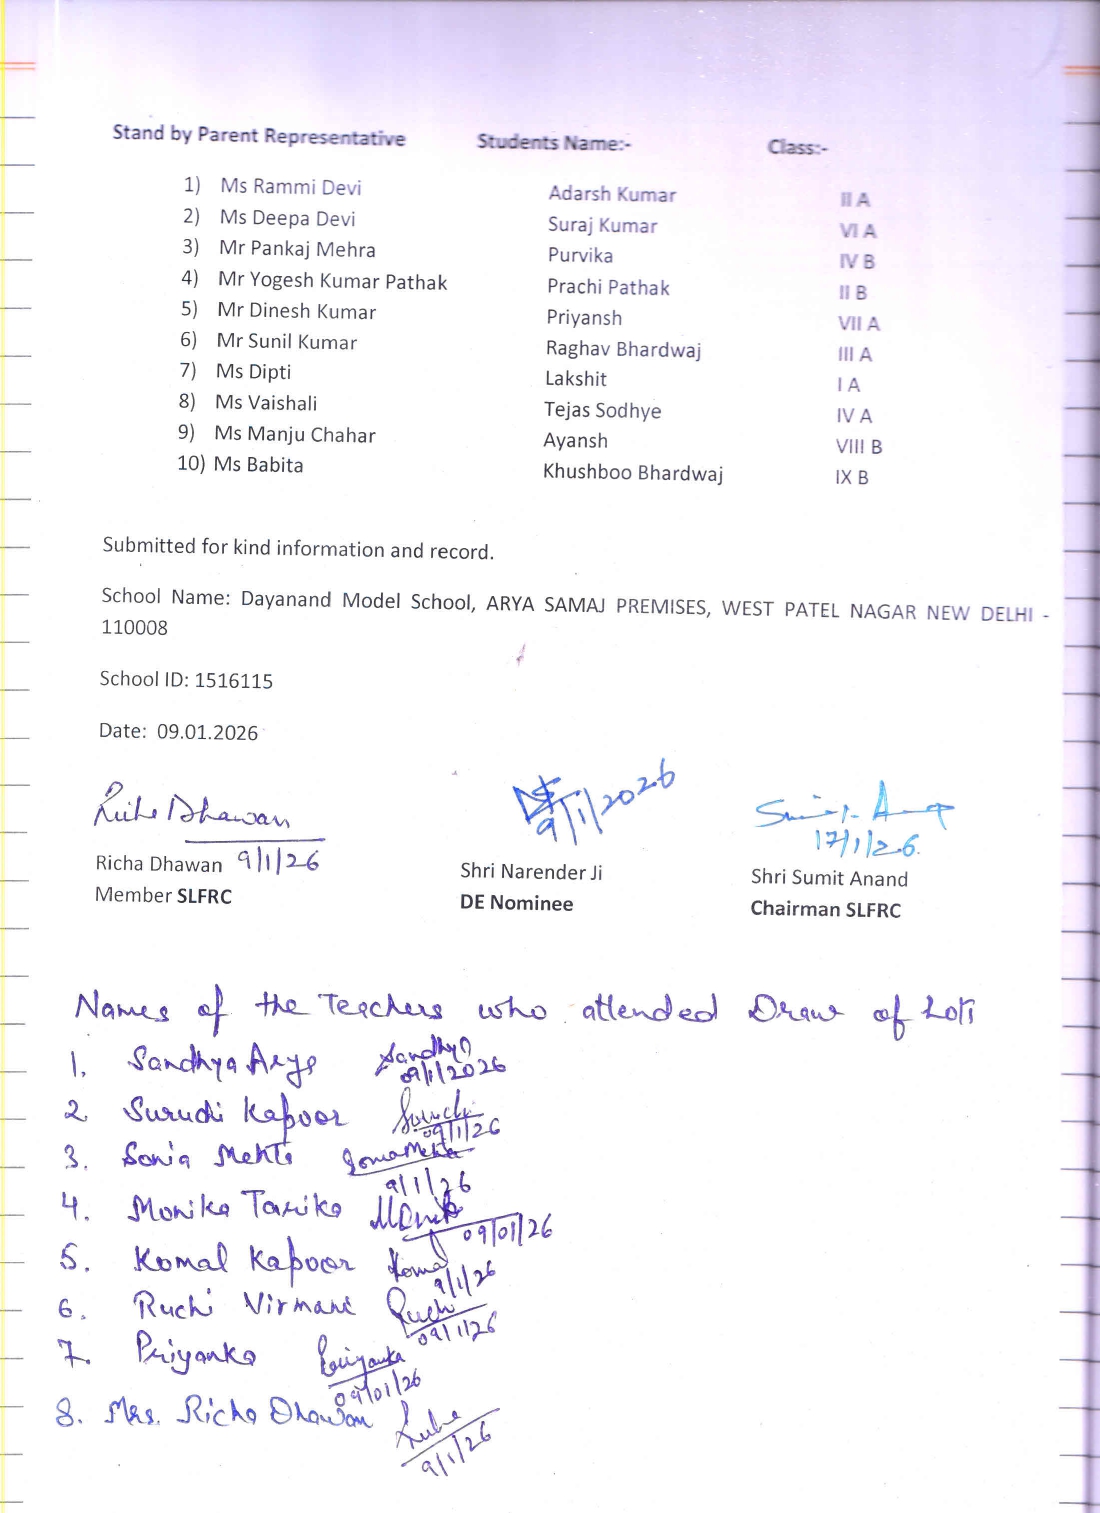 Stand by Parent Representative Students Name:- Class:-
1) Ms Rammi Devi Adarsh Kumar II A
2) Ms Deepa Devi Suraj Kumar VI A
3) Mr Pankaj Mehra Purvika IV B
4) Mr Yogesh Kumar Pathak Prachi Pathak II B
5) Mr Dinesh Kumar Priyansh VII A
6) Mr Sunil Kumar Raghav Bhardwaj III A
7) Ms Dipti Lakshit I A
8) Ms Vaishali Tejas Sodhye IV A
9) Ms Manju Chahar Ayansh VIII B
10) Ms Babita Khushboo Bhardwaj IX B
Submitted for kind information and record.
School Name: Dayanand Model School, ARYA SAMAJ PREMISES, WEST PATEL NAGAR NEW DELHI -
110008
School ID: 1516115
Date: 09.01.2026
Richa Dhawan 9/1/2026 Sumit Anand
17/1/26
Richa Dhawan 9/1/26 Shri Narender Ji Shri Sumit Anand
Member SLFRC DE Nominee Chairman SLFRC
Names of the Teachers who attended Draw of Lots
1. Sandhya Arya Sandhya
09/1/2026
2. Suruchi Kapoor Suruchi
09/1/26
3. Sonia Mehta Sonia Mehta
9/1/26
4. Monika Tarika Monika
09/01/26
5. Komal Kapoor Komal
9/1/26
6. Ruchi Virmani Ruchi
09/1/26
7. Priyanka Priyanka
09/01/26
8. Mrs. Richa Dhawan Richa
9/1/26